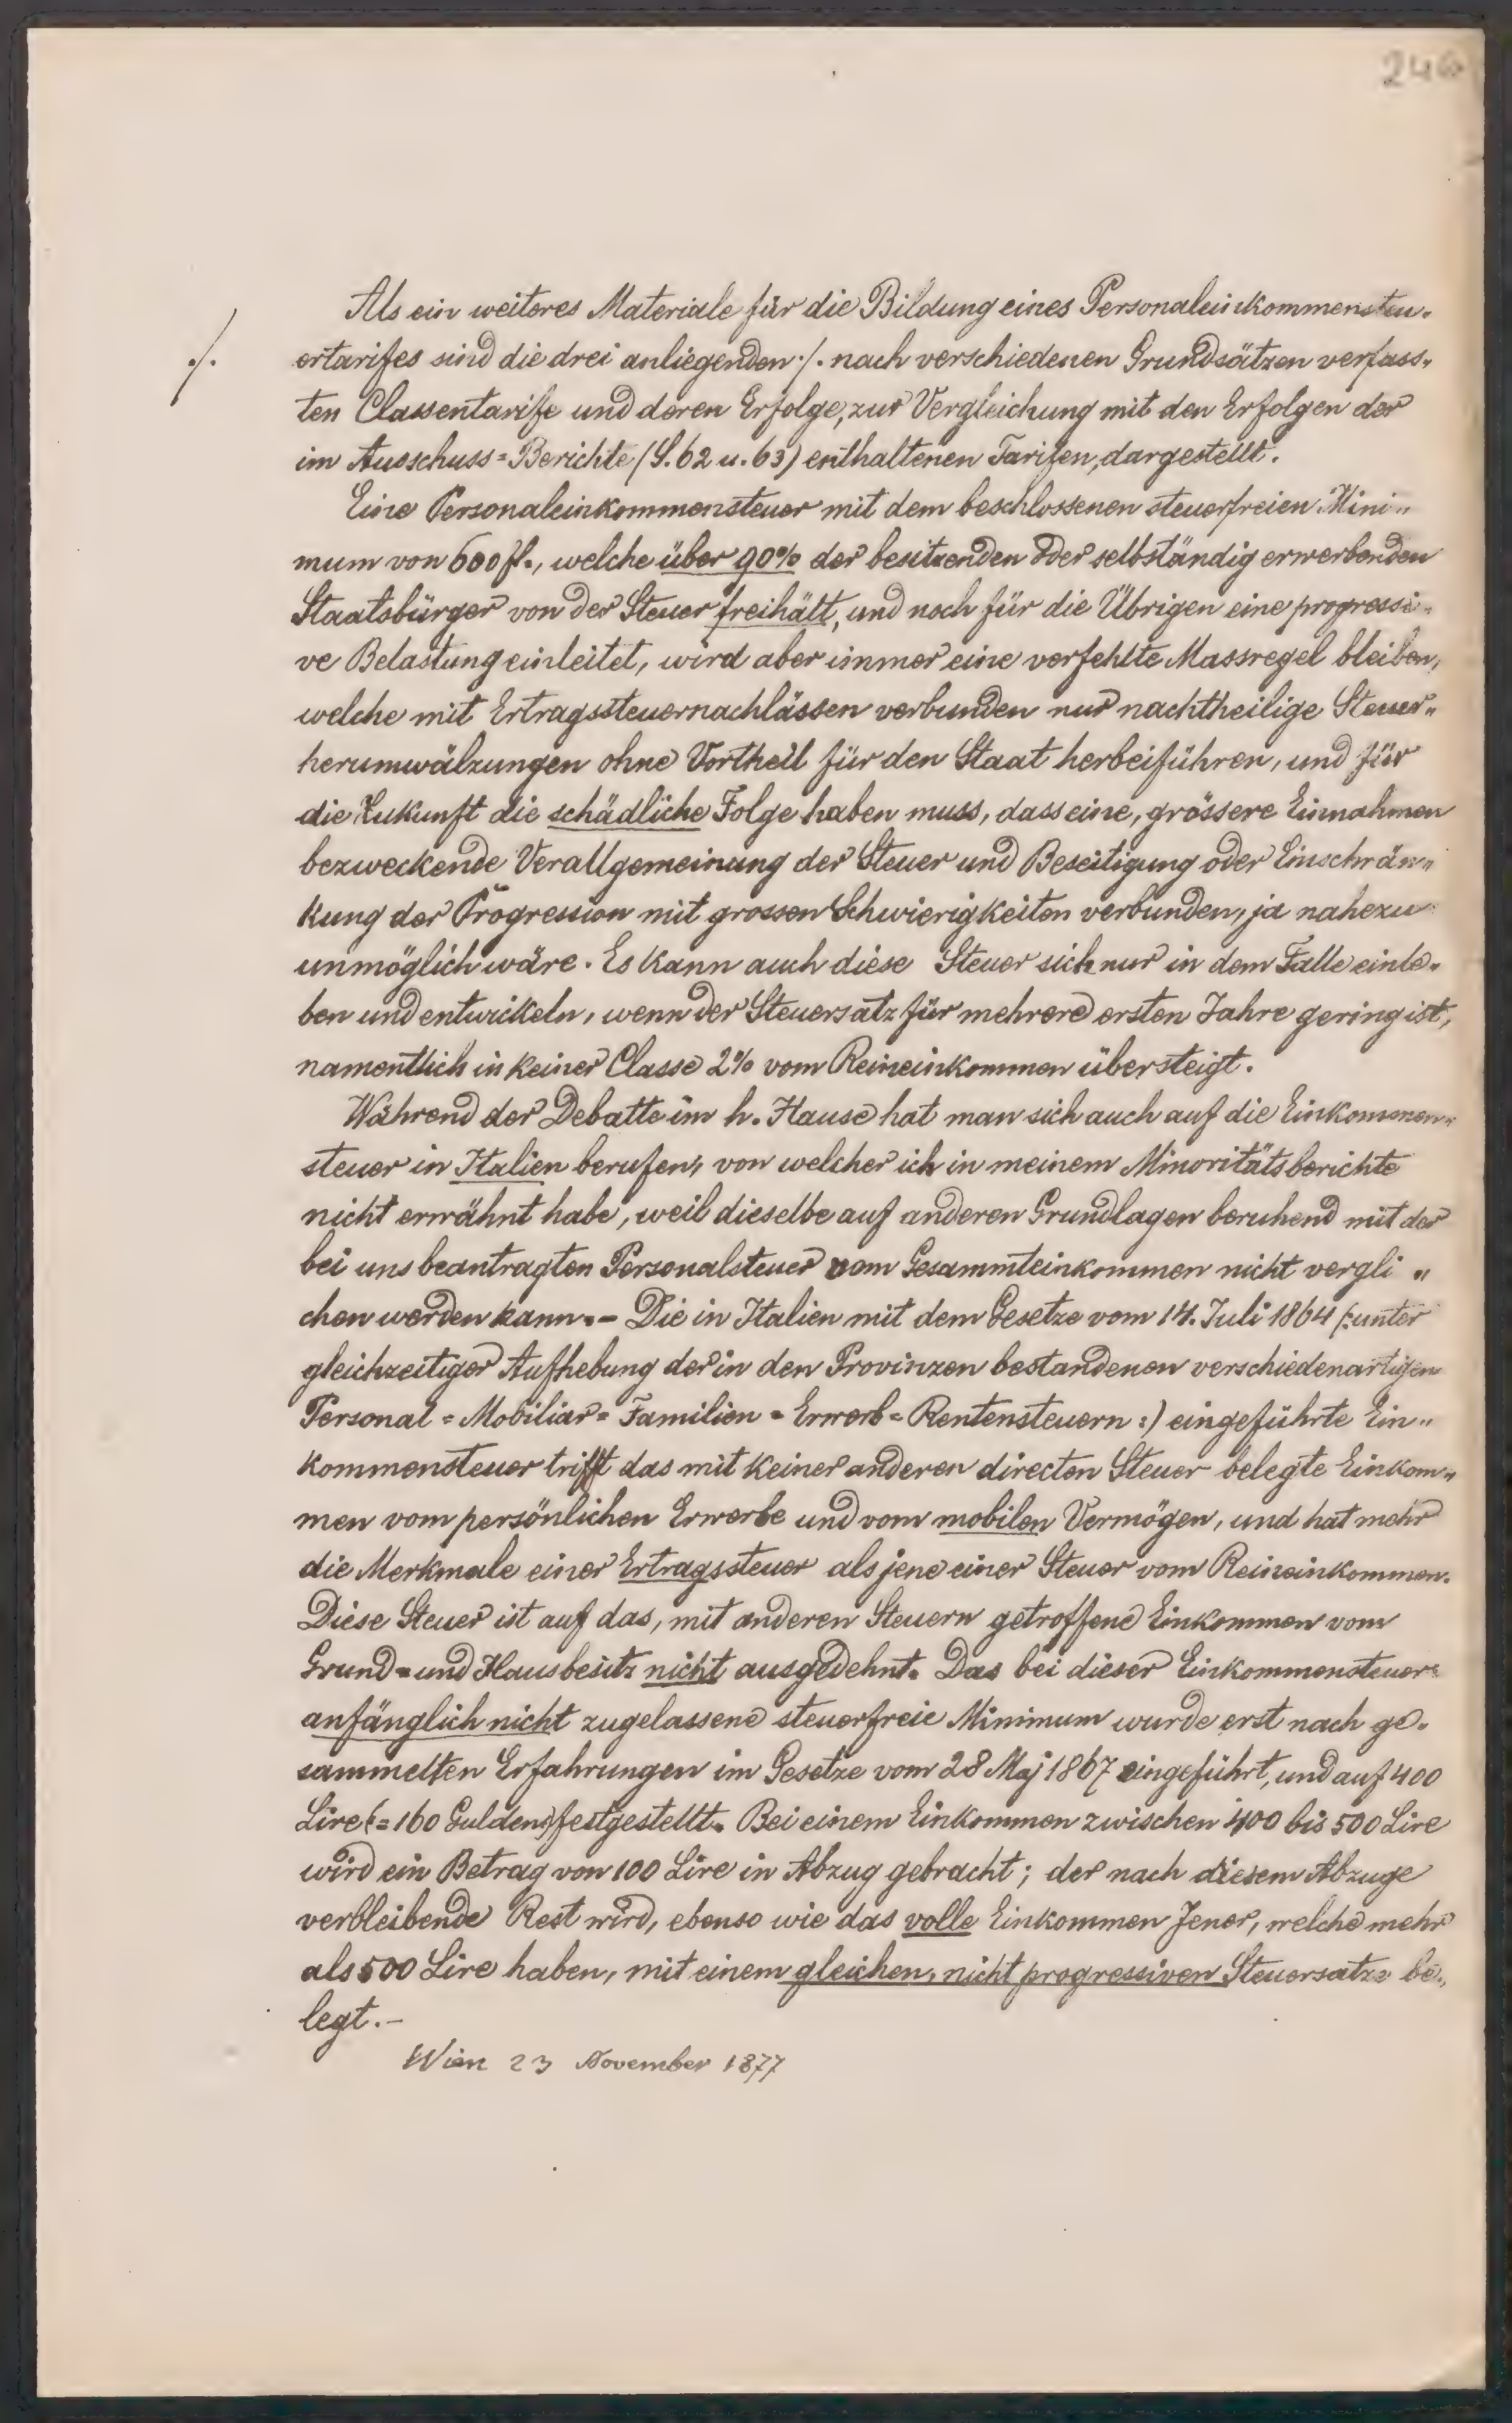 246
Als ein weiteres Materiale für die Bildung eines Personaleinkommensteu-
./.
ertarifes sind die drei anliegenden ./. nach verschiedenen Grundsätzen verfass-
ten Classentarife und deren Erfolge, zur Vergleichung mit den Erfolgen der
im Ausschuss=Berichte (S. 62 u. 63) enthaltenen Tarifen, dargestellt.
Eine Personaleinkommensteuer mit dem beschlossenen steuerfreien Mini-
mum von 600 fl., welche über 90% der besitzenden oder selbständig erwerbenden
Staatsbürger von der Steuer freihält, und noch für die Übrigen eine progressi-
ve Belastung einleitet, wird aber immer eine verfehlte Massregel bleiben,
welche mit Ertragssteuernachlässen verbunden nur nachtheilige Steuer-
herumwälzungen ohne Vortheil für den Staat herbeiführen, und für
die Zukunft die schädliche Folge haben muss, dass eine, grössere Einnahmen
bezweckende Verallgemeinung der Steuer und Beseitigung oder Einschrän-
kung der Progression mit grossen Schwierigkeiten verbunden, ja nahezu
unmöglich wäre. Es kann auch diese Steuer sich nur in dem Falle einle-
ben und entwickeln, wenn der Steuersatz für mehrere ersten Jahre gering ist,
namentlich in keiner Classe 2% vom Reineinkommen übersteigt.
Während der Debatte im h. Hause hat man sich auch auf die Einkommen-
steuer in Italien berufen, von welcher ich in meinem Minoritätsberichte
nicht erwähnt habe, weil dieselbe auf anderen Grundlagen beruhend mit der
bei uns beantragten Personalsteuer vom Gesammteinkommen nicht vergli-
chen werden kann. – Die in Italien mit dem Gesetze vom 14. Juli 1864 (: unter
gleichzeitiger Aufhebung der in den Provinzen bestandenen verschiedenartigen
Personal = Mobiliar = Familien = Erwerb = Rentensteuern :) eingeführte Ein-
kommensteuer trifft das mit keiner anderen directen Steuer belegte Einkom-
men vom persönlichen Erwerbe und vom mobilen Vermögen, und hat mehr
die Merkmale einer Ertragssteuer als jene einer Steuer vom Reineinkommen.
Diese Steuer ist auf das, mit anderen Steuern getroffene Einkommen vom
Grund= und Hausbesitz nicht ausgedehnt. Das bei dieser Einkommensteuer
anfänglich nicht zugelassene steuerfreie Minimum wurde erst nach ge-
sammelten Erfahrungen im Gesetze vom 28 Maj 1867 eingeführt, und auf 400
Lire (= 160 Gulden) festgestellt. Bei einem Einkommen zwischen 400 bis 500 Lire
wird ein Betrag von 100 Lire in Abzug gebracht; der nach diesem Abzuge
verbleibende Rest wird, ebenso wie das volle Einkommen Jener, welche mehr
als 500 Lire haben, mit einem gleichen, nicht progressiven Steuersatze be-
legt. –
Wien 23 November 1877